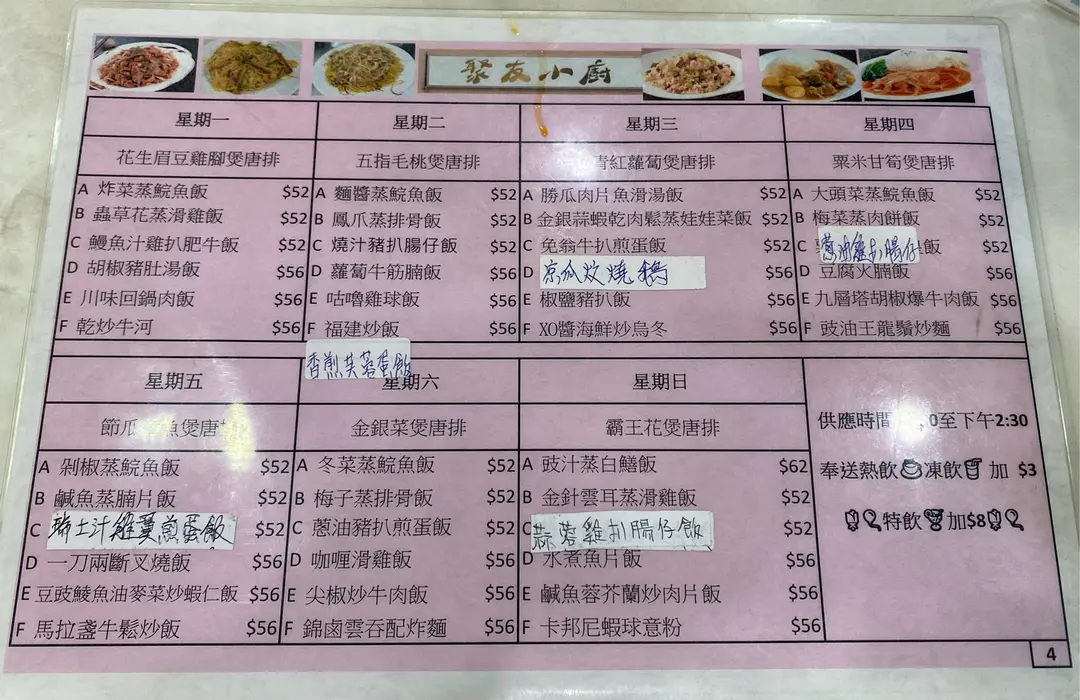 聚友小廚
星期一
花生眉豆雞腳煲唐排
A 炸菜蒸鯇魚飯 $52
B 蟲草花蒸滑雞飯 $52
C 鰻魚汁雞扒肥牛飯 $52
D 胡椒豬肚湯飯 $56
E 川味回鍋肉飯 $56
F 乾炒牛河 $56
星期二
五指毛桃煲唐排
A 麵醬蒸鯇魚飯 $52
B 鳳爪蒸排骨飯 $52
C 燒汁豬扒腸仔飯 $52
D 蘿蔔牛筋腩飯 $56
E 咕嚕雞球飯 $56
F 福建炒飯 $56
星期三
青紅蘿蔔煲唐排
A 勝瓜肉片魚滑湯飯 $52
B 金銀蒜蝦乾肉鬆蒸娃娃菜飯 $52
C 免翁牛扒煎蛋飯 $52
D 涼瓜炆燒鵝 $56
E 椒鹽豬扒飯 $56
F XO醬海鮮炒烏冬 $56
星期四
粟米甘筍煲唐排
A 大頭菜蒸鯇魚飯 $52
B 梅菜蒸肉餅飯 $52
C 蔥油雞扒腸仔飯 $52
D 豆腐火腩飯 $56
E 九層塔胡椒爆牛肉飯 $56
F 豉油王龍鬚炒麵 $56
星期五
節瓜魚煲唐
A 剁椒蒸鯇魚飯 $52
B 鹹魚蒸腩片飯 $52
C 瑞士汁雞翼煎蛋飯 $52
D 一刀兩斷叉燒飯 $56
E 豆豉鯪魚油麥菜炒蝦仁飯 $56
F 馬拉盞牛鬆炒飯 $56
香煎芙蓉蛋飯
星期六
金銀菜煲唐排
A 冬菜蒸鯇魚飯 $52
B 梅子蒸排骨飯 $52
C 蔥油豬扒煎蛋飯 $52
D 咖喱滑雞飯 $56
E 尖椒炒牛肉飯 $56
F 錦鹵雲吞配炸麵 $56
星期日
霸王花煲唐排
A 豉汁蒸白鱔飯 $62
B 金針雲耳蒸滑雞飯 $52
C 蒜蓉雞扒腸仔飯 $52
D 水煮魚片飯 $56
E 鹹魚蓉芥蘭炒肉片飯 $56
F 卡邦尼蝦球意粉 $56
供應時間 0至下午2:30
奉送熱飲 凍飲 加 $3
特飲 加$8
4